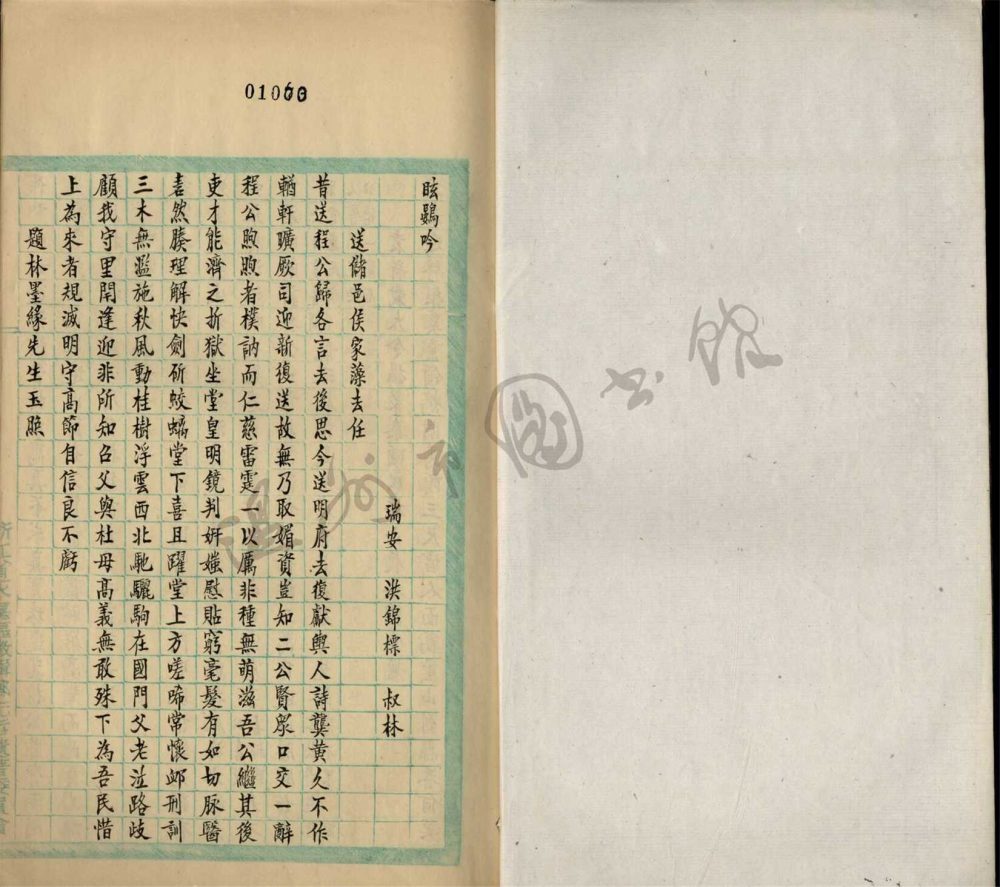 01063
眩鶢吟
瑞安 洪錦標 叔林
送儲邑侯家藻去任
昔送程公歸各言去後思今送明府去復獻輿人詩龔黃久不作
輶軒曠厥司迎新復送故無乃取媚資豈知二公賢眾口交一辭
程公煦煦者樸訥而仁慈雷霆一以厲非種無萌滋吾公繼其後
吏才能濟之折獄坐堂皇明鏡判妍媸慰貼窮毫髮有如切脉醫
砉然腠理解快劍斫蛟螭堂下喜且躍堂上方嗟啼常懷邺刑訓
三木無濫施秋風動桂樹浮雲西北馳驪駒在國門父老泣路歧
顧我守里閈逢迎非所知召父與杜母高義無敢殊下為吾民惜
上為來者規滅明守高節自信良不虧
題林墨緣先生玉照
溫州市圖書館